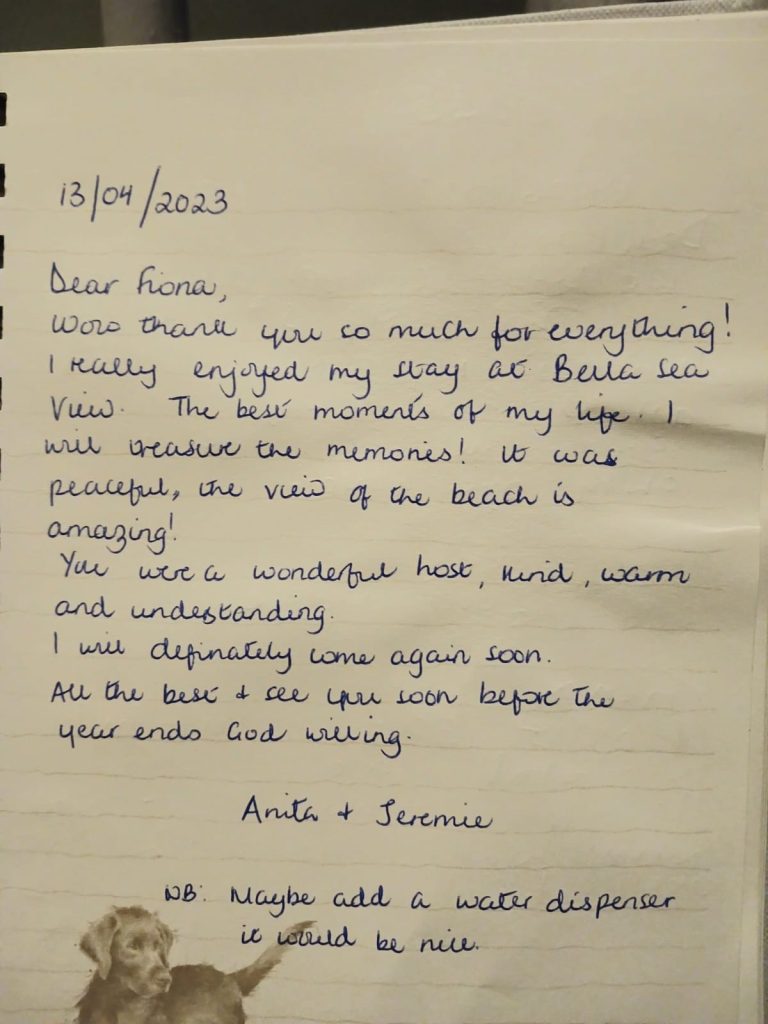 13/04/2023
Dear Fiona,
Wow thank you so much for everything!
I really enjoyed my stay at Bella Sea
View. The best moments of my life. I
will treasure the memories! It was
peaceful, the view of the beach is
amazing!
You were a wonderful host, kind, warm
and understanding.
I will definately come again soon.
All the best & see you soon before the
year ends God willing.
Anita & Jeremie
NB: Maybe add a water dispenser
it would be nice.